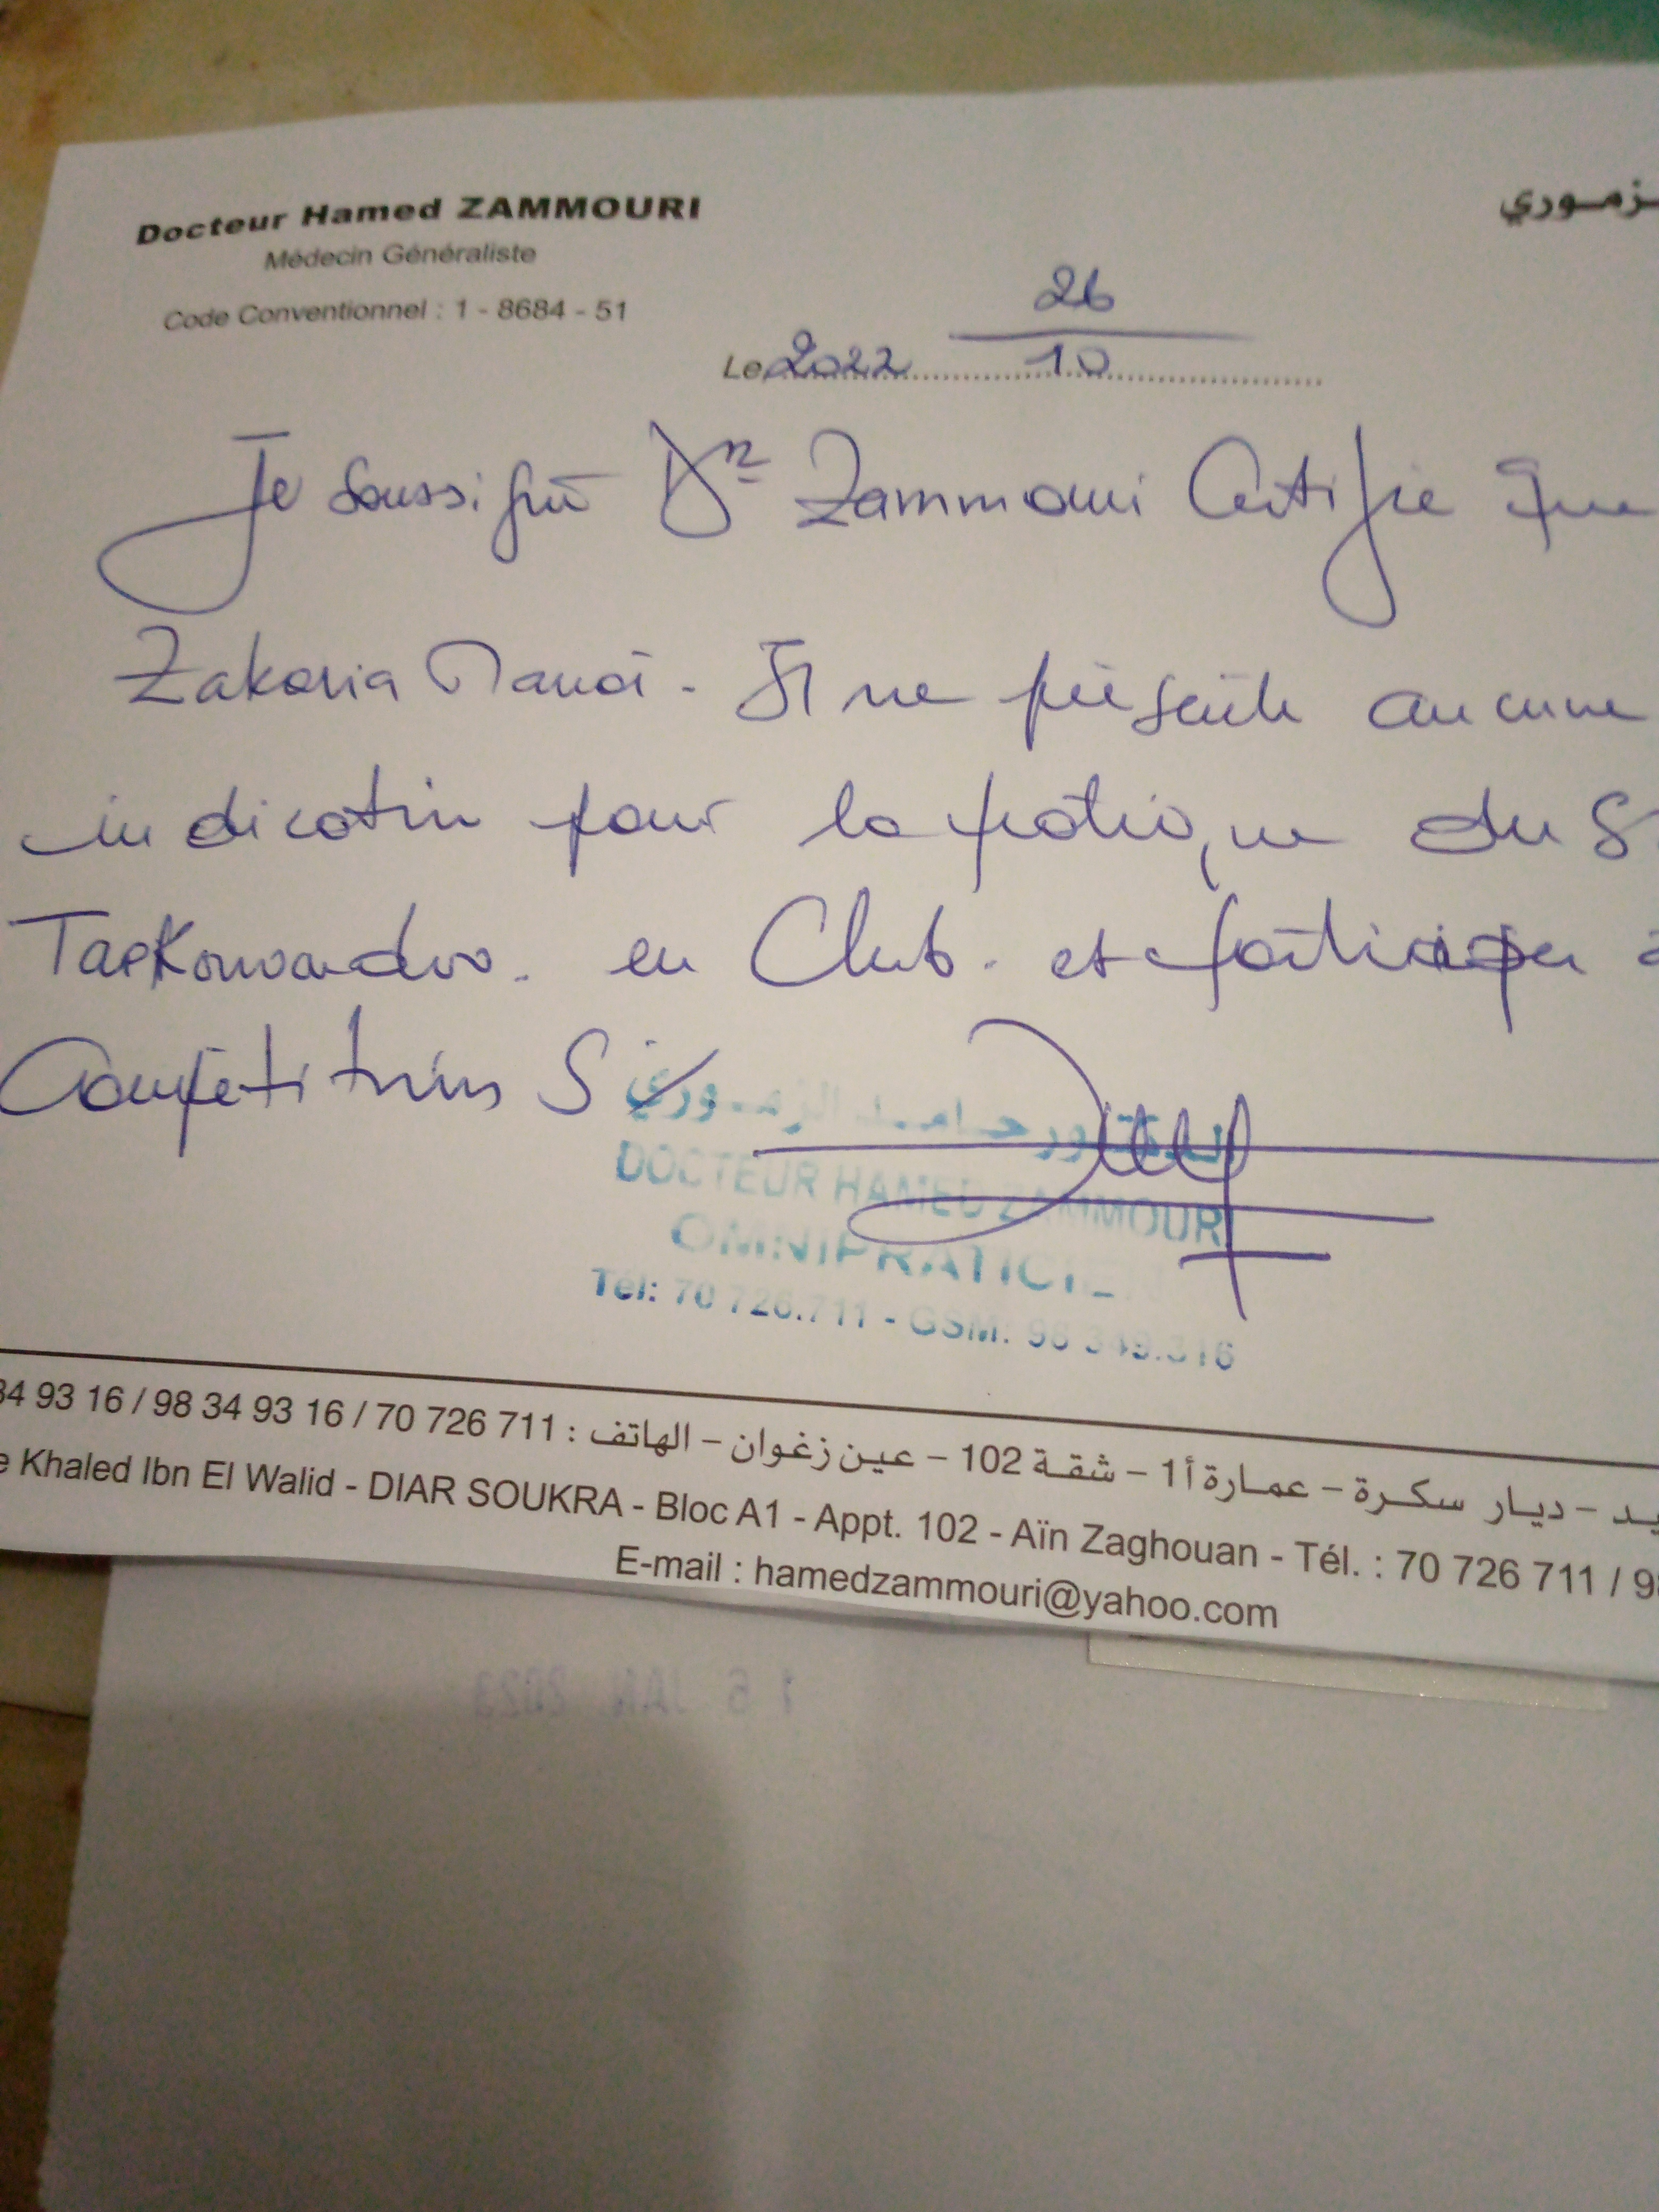 Docteur Hamed ZAMMOURI
زموري
Médecin Généraliste
Code Conventionnel : 1 - 8684 - 51
26
Le 2022 10
Je soussigné Dr Zammouri Certifie que
Zakaria. Il ne présente aucune
indication pour la pratique du
Taekowando. en Club. et participer
Compétitions S
الدكتور حامد الزموري
DOCTEUR HAMED ZAMMOURI
OMNIPRATICIE
Tél: 70 726.711 - GSM: 98 349.316
34 93 16 / 98 34 93 16 / 70 726 711 : يد - ديار سكرة - عمارة أ1 - شقة 102 - عين زغوان - الهاتف
e Khaled Ibn El Walid - DIAR SOUKRA - Bloc A1 - Appt. 102 - Aïn Zaghouan - Tél. : 70 726 711 / 9
E-mail : hamedzammouri@yahoo.com
16 JAN 2023